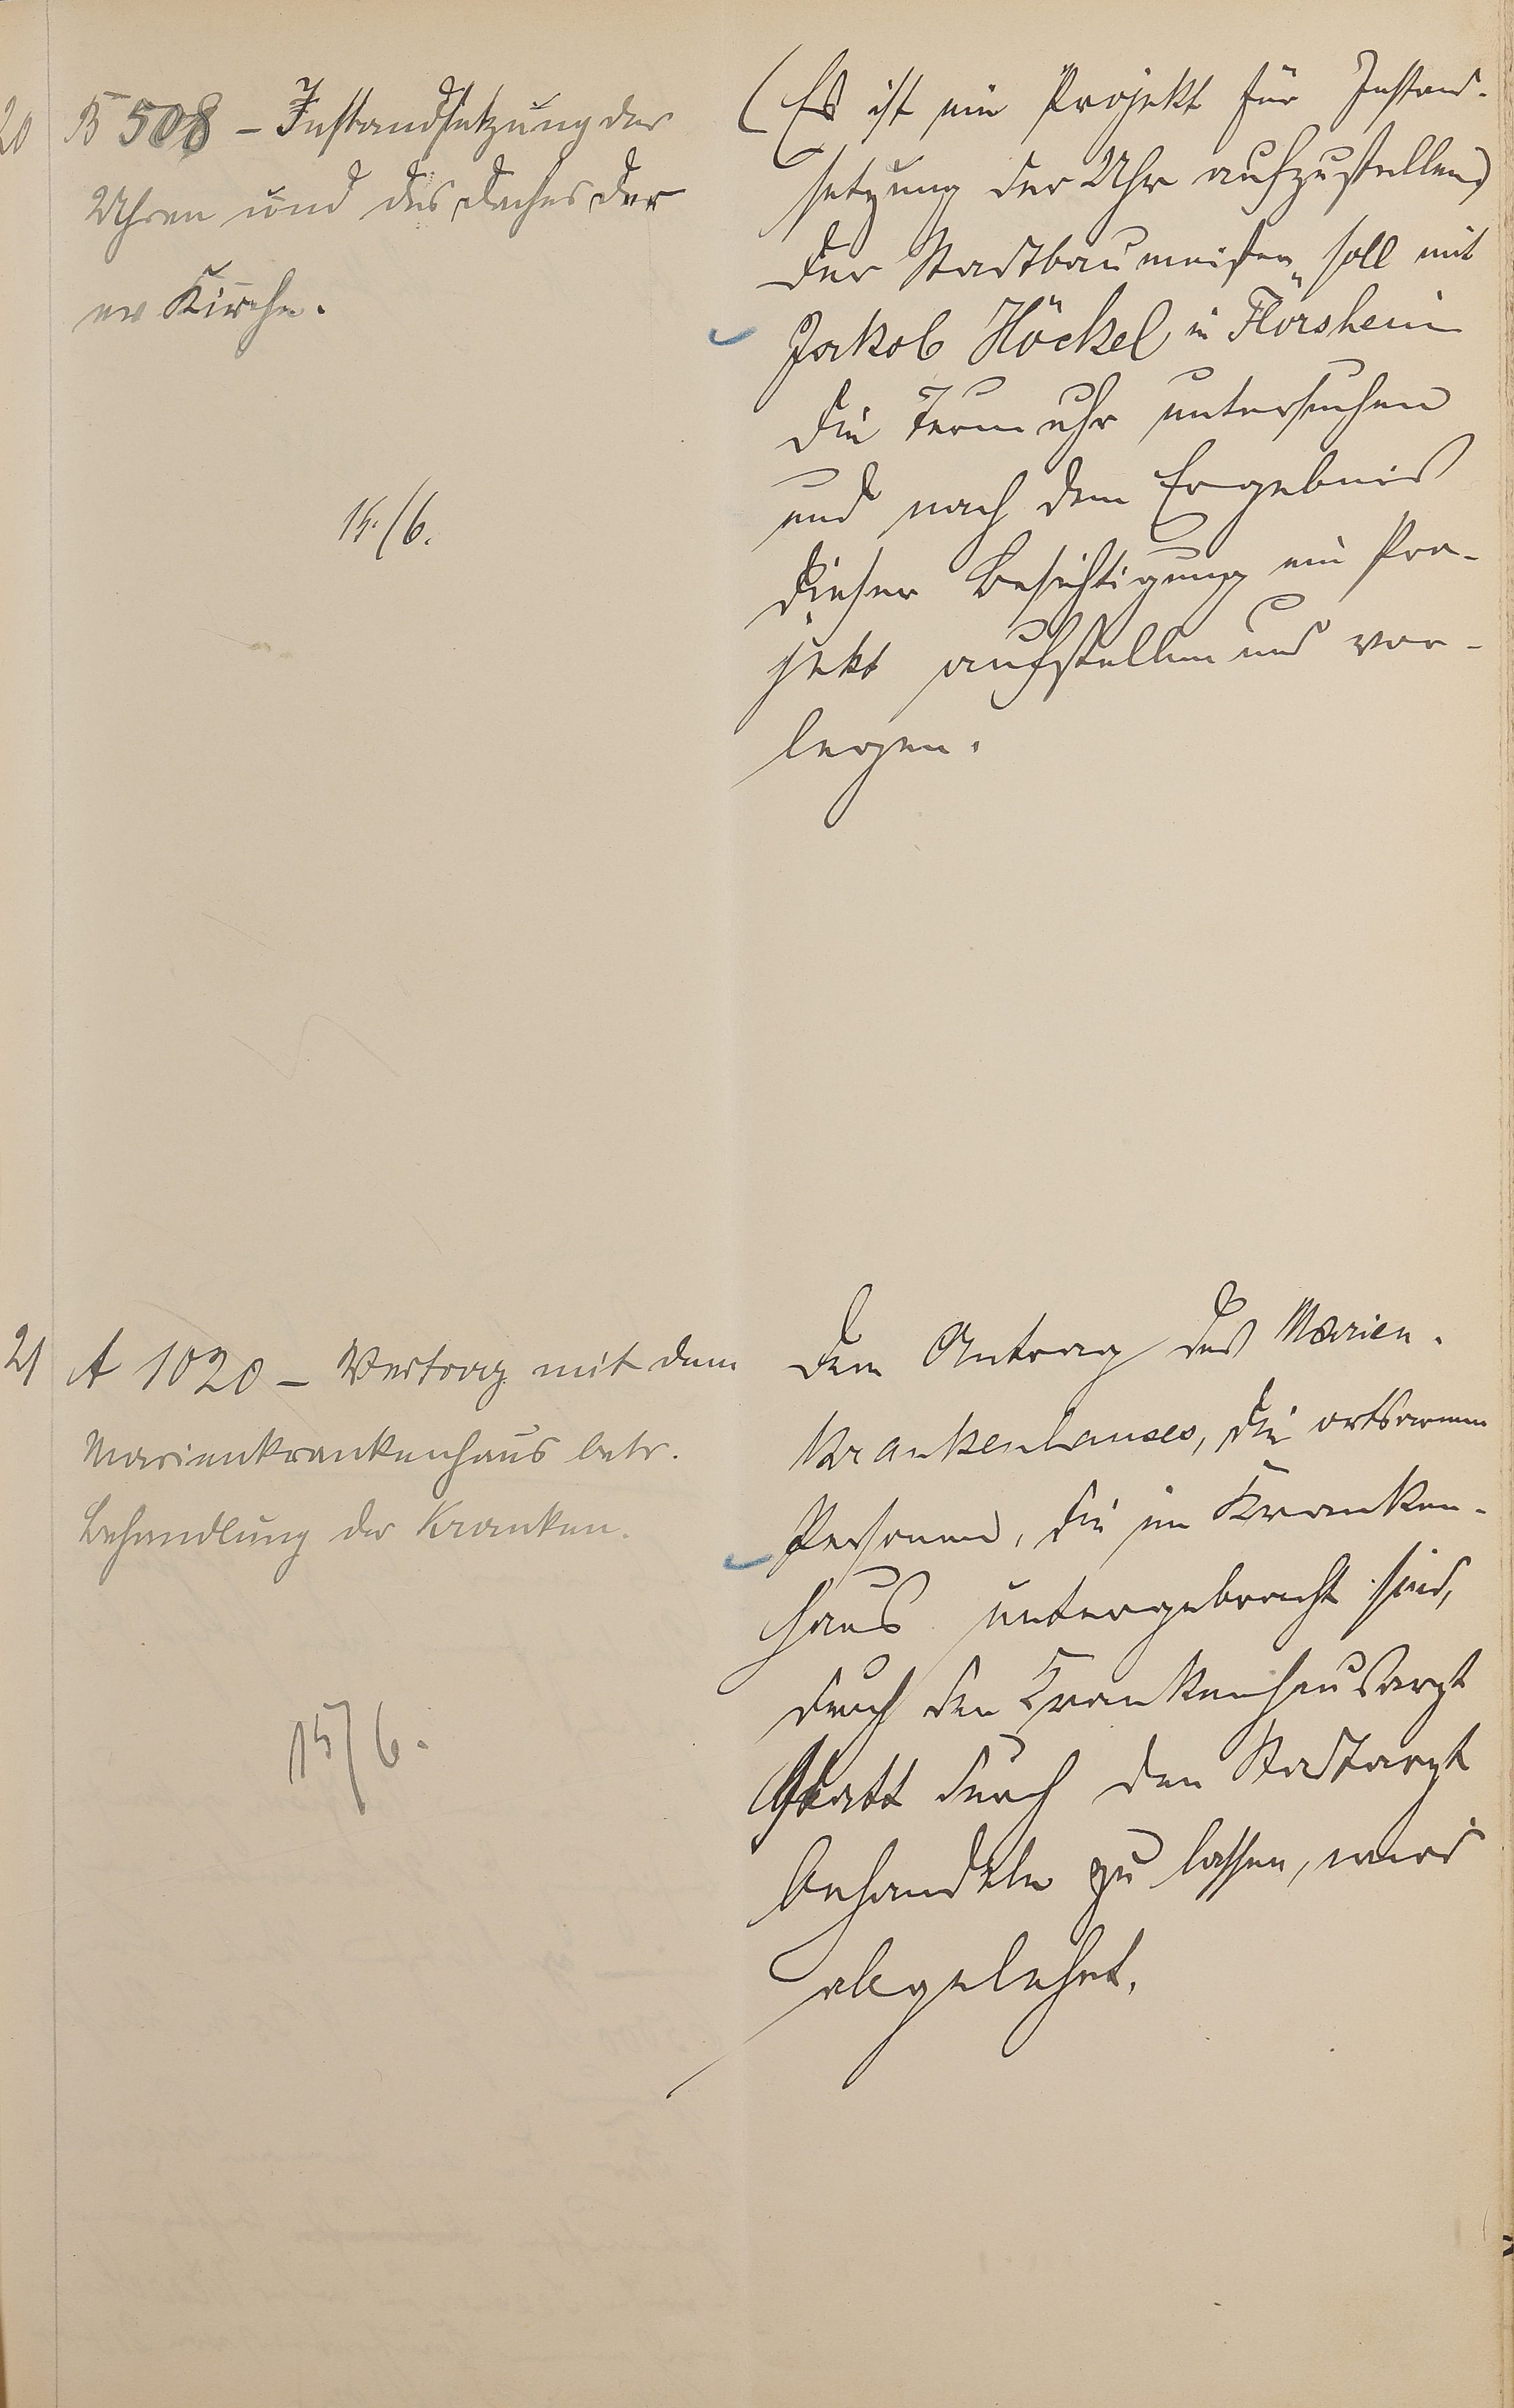 20
B 508 - Instandsetzung der
Uhren und des Daches der
ev Kirche.
15./6.
(Es ist ein Projekt für Instand-
setzung der Uhr aufzustellen)
Der Stadtbaumeister soll mit
Jakob Höckel in Flörsheim
die Turmuhr untersuchen
und nach dem Ergebnis
dieser Besichtigung ein Pro-
jekt aufstellen und vor-
legen.
21
A 1020 - Vertrag mit dem
Marienkrankenhaus betr.
Behandlung der Kranken.
15/6.
Der Antrag des Marien-
krankenhauses, die ortsarmen
Personen, die im Kranken-
haus untergebracht sind,
durch den Krankenhausarzt
statt durch den Stadtarzt
behandeln zu lassen, wird
abgelehnt.